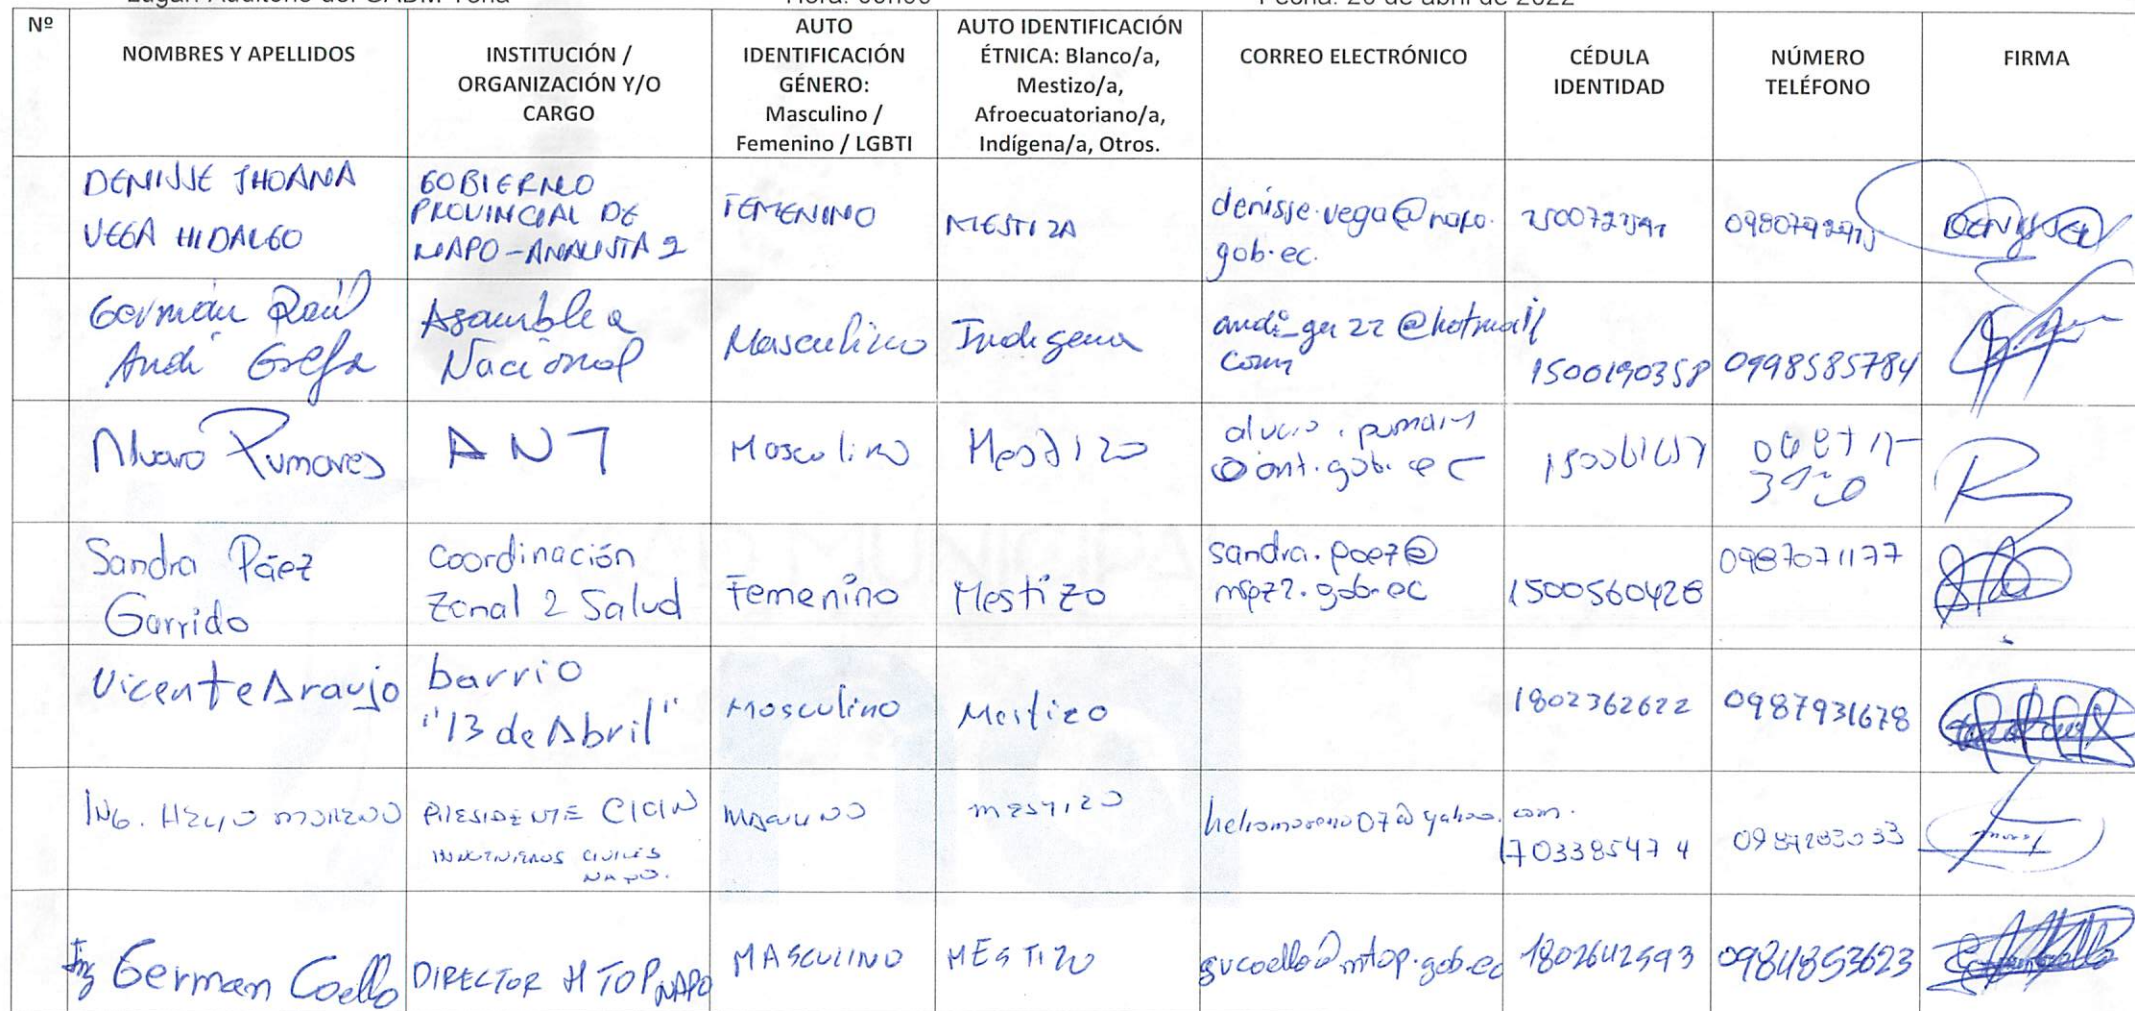 Nº
NOMBRES Y APELLIDOS
INSTITUCIÓN /
ORGANIZACIÓN Y/O
CARGO
AUTO
IDENTIFICACIÓN
GÉNERO:
Masculino /
Femenino / LGBTI
AUTO IDENTIFICACIÓN
ÉTNICA: Blanco/a,
Mestizo/a,
Afroecuatoriano/a,
Indígena/a, Otros.
CORREO ELECTRÓNICO
CÉDULA
IDENTIDAD
NÚMERO
TELÉFONO
FIRMA
DENISSE JHOANA
VEGA HIDALGO
GOBIERNO
PROVINCIAL DE
NAPO - ANALISTA 2
FEMENINO
MESTIZA
denisse.vega@napo.
gob.ec.
Germán Raúl
Andi Grefa
Asamblea
Nacional
Masculino
Indigena
andi_ger22@hotmail
com
1500190358
0998585784
Alvaro Pumares
ANT
Masculino
Mestizo
@ant.gob.ec
Sandra Páez
Garrido
Coordinación
Zonal 2 Salud
Femenino
Mestizo
sandra.paez@
mspz2.gob.ec
1500560428
0987071177
Vicente Araujo
barrio
"13 de Abril"
Masculino
Mestizo
1802362622
0987931678
ING. HELIO MORENO
PRESIDENTE CICIN
INGENIEROS CIVILES
NAPO.
MASCULINO
MESTIZO
heliomoreno07@yahoo.com.
1703385474
Ing German Coello
DIRECTOR MTOP NAPO
MASCULINO
MESTIZO
gvcoello@mtop.gob.ec
1802642593
0984853623